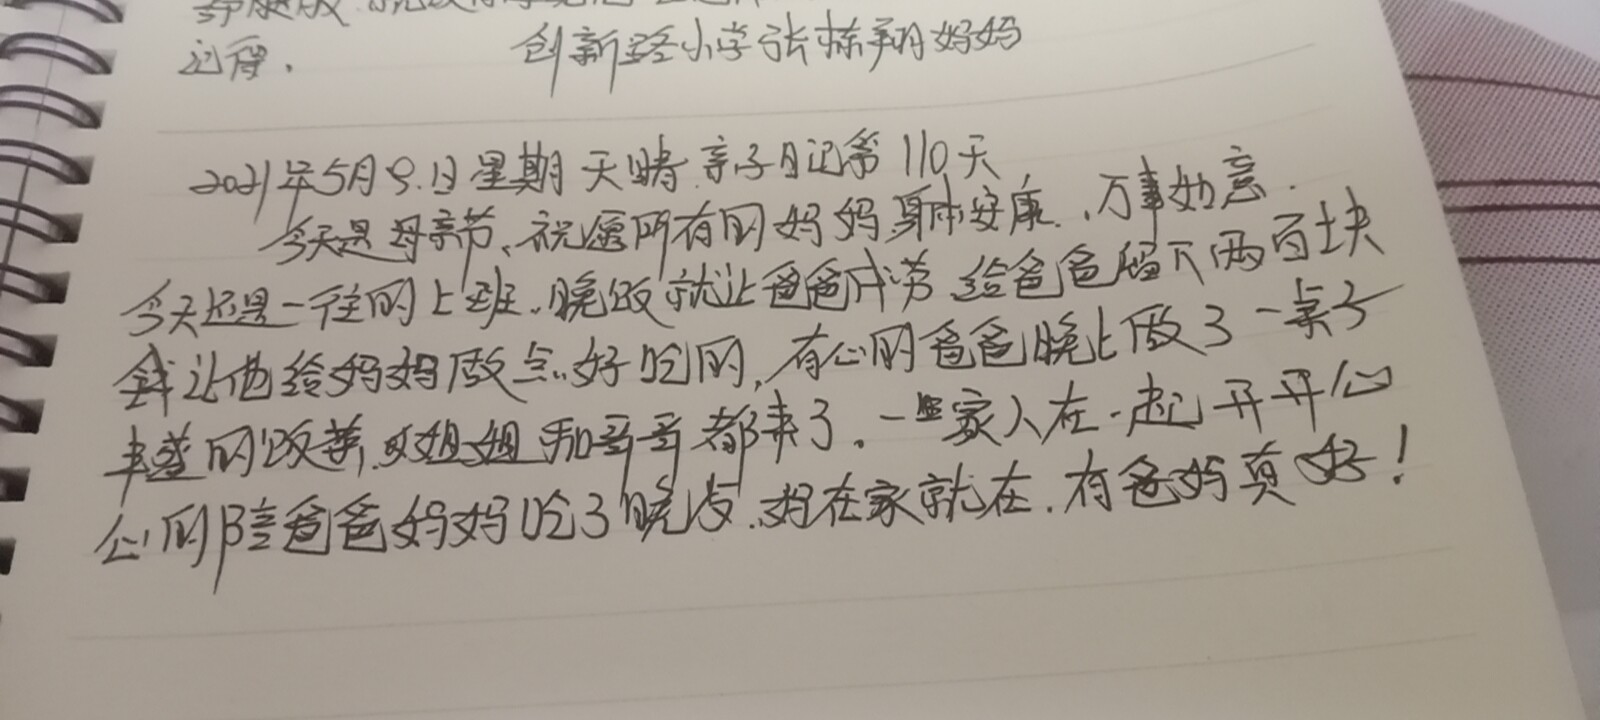 记得. 创新路小学张栋翔妈妈
2021年5月9.日星期天晴.亲子日记第110天
今天是母亲节、祝愿所有的妈妈身体安康.、万事如意.
今天还是一往的上班.晚饭就让爸爸代劳 给爸爸留下两百块
钱让他给妈妈做点好吃的,有心的爸爸晚上做了一桌子
丰盛的饭菜.姐姐和哥哥都来了.一家人在一起开开心
心的陪爸爸妈妈吃了晚饭.妈在家就在.有爸妈真好!